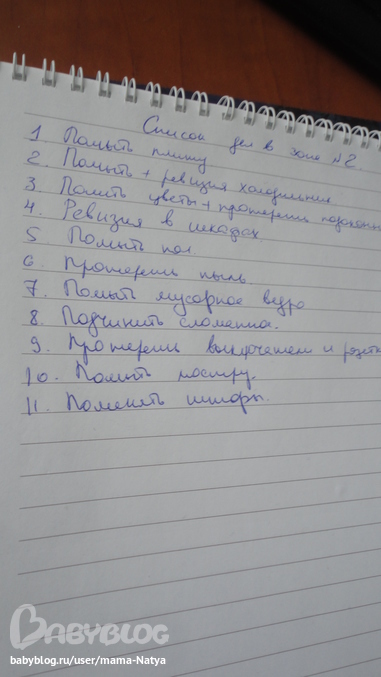 Список дел в зоне №2.
1 Помыть плиту
2. Помыть + ревизия холодильника
3. Полить цветы + протереть подоконн
4. Ревизия в шкафах.
5. Помыть пол.
6 Протереть пыль
7. Помыть мусорное ведро
8. Подчинить сломанное.
9. Протереть выключатели и розетк
10. Помыть люстру.
11. Поменять шторы.
BABYBLOG
babyblog.ru/user/mama-Natya